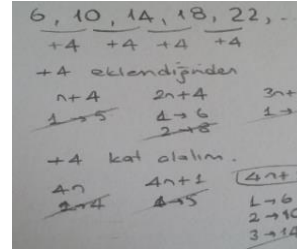 6, 10, 14, 18, 22, ..
+4 +4 +4 +4
+4 eklendiğinden
n+4 2n+4 3n+
1→5 1→6 1→
2→8
+4 kat olalım.
4n 4n+1 4n+
1→5 1→6
2→10
3→14